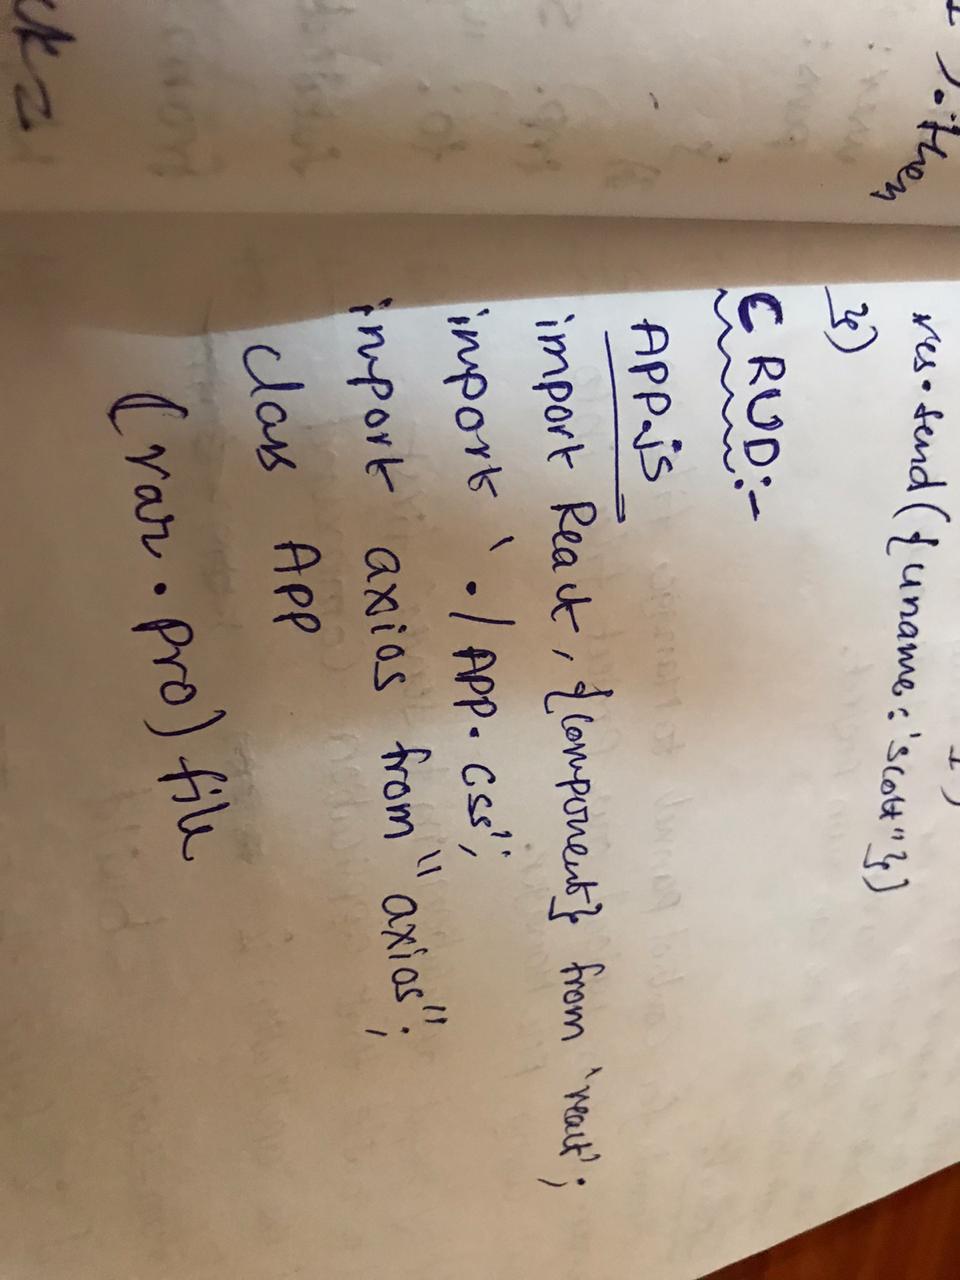 res.send({uname:'scott"})
})
CRUD:-
APP.js
import React, {component} from 'react';
import './APP.css';
import axios from "axios";
class APP
(var.pro) file
).then